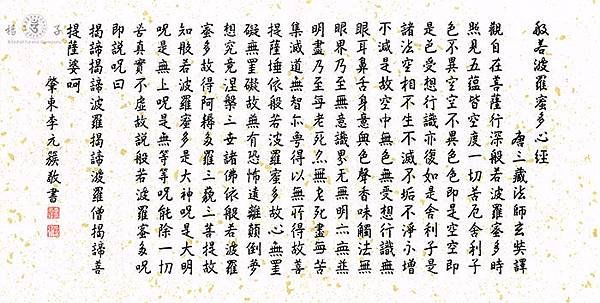 般若波羅蜜多心經
唐三藏法師玄奘譯
觀自在菩薩行深般若波羅蜜多時
照見五蘊皆空度一切苦厄舍利子
色不異空空不異色色即是空空即
是色受想行識亦復如是舍利子是
諸法空相不生不滅不垢不淨不增
不減是故空中無色無受想行識無
眼耳鼻舌身意無色聲香味觸法無
眼界乃至無意識界無無明亦無無
明盡乃至無老死亦無老死盡無苦
集滅道無智亦無得以無所得故菩
提薩埵依般若波羅蜜多故心無罣
礙無罣礙故無有恐怖遠離顛倒夢
想究竟涅槃三世諸佛依般若波羅
蜜多故得阿耨多羅三藐三菩提故
知般若波羅蜜多是大神呪是大明
呪是無上呪是無等等呪能除一切
苦真實不虛故說般若波羅蜜多呪
即說呪曰
揭諦揭諦波羅揭諦波羅僧揭諦菩
提薩婆呵
肇東李元簇敬書